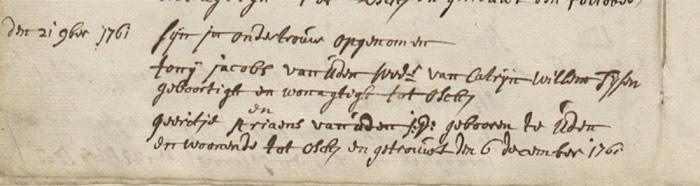 den 21 9ber 1761 sijn in ondertrouw opgenomen
tonij jacobs van uden wedr van Catrijn Willem Tijssen
geboortigh en wonagtigh tot Osch
en
geertje Ariaens van uden j:d: geboren te uden
en woonende tot Osch en getrouwt den 6 december 1761